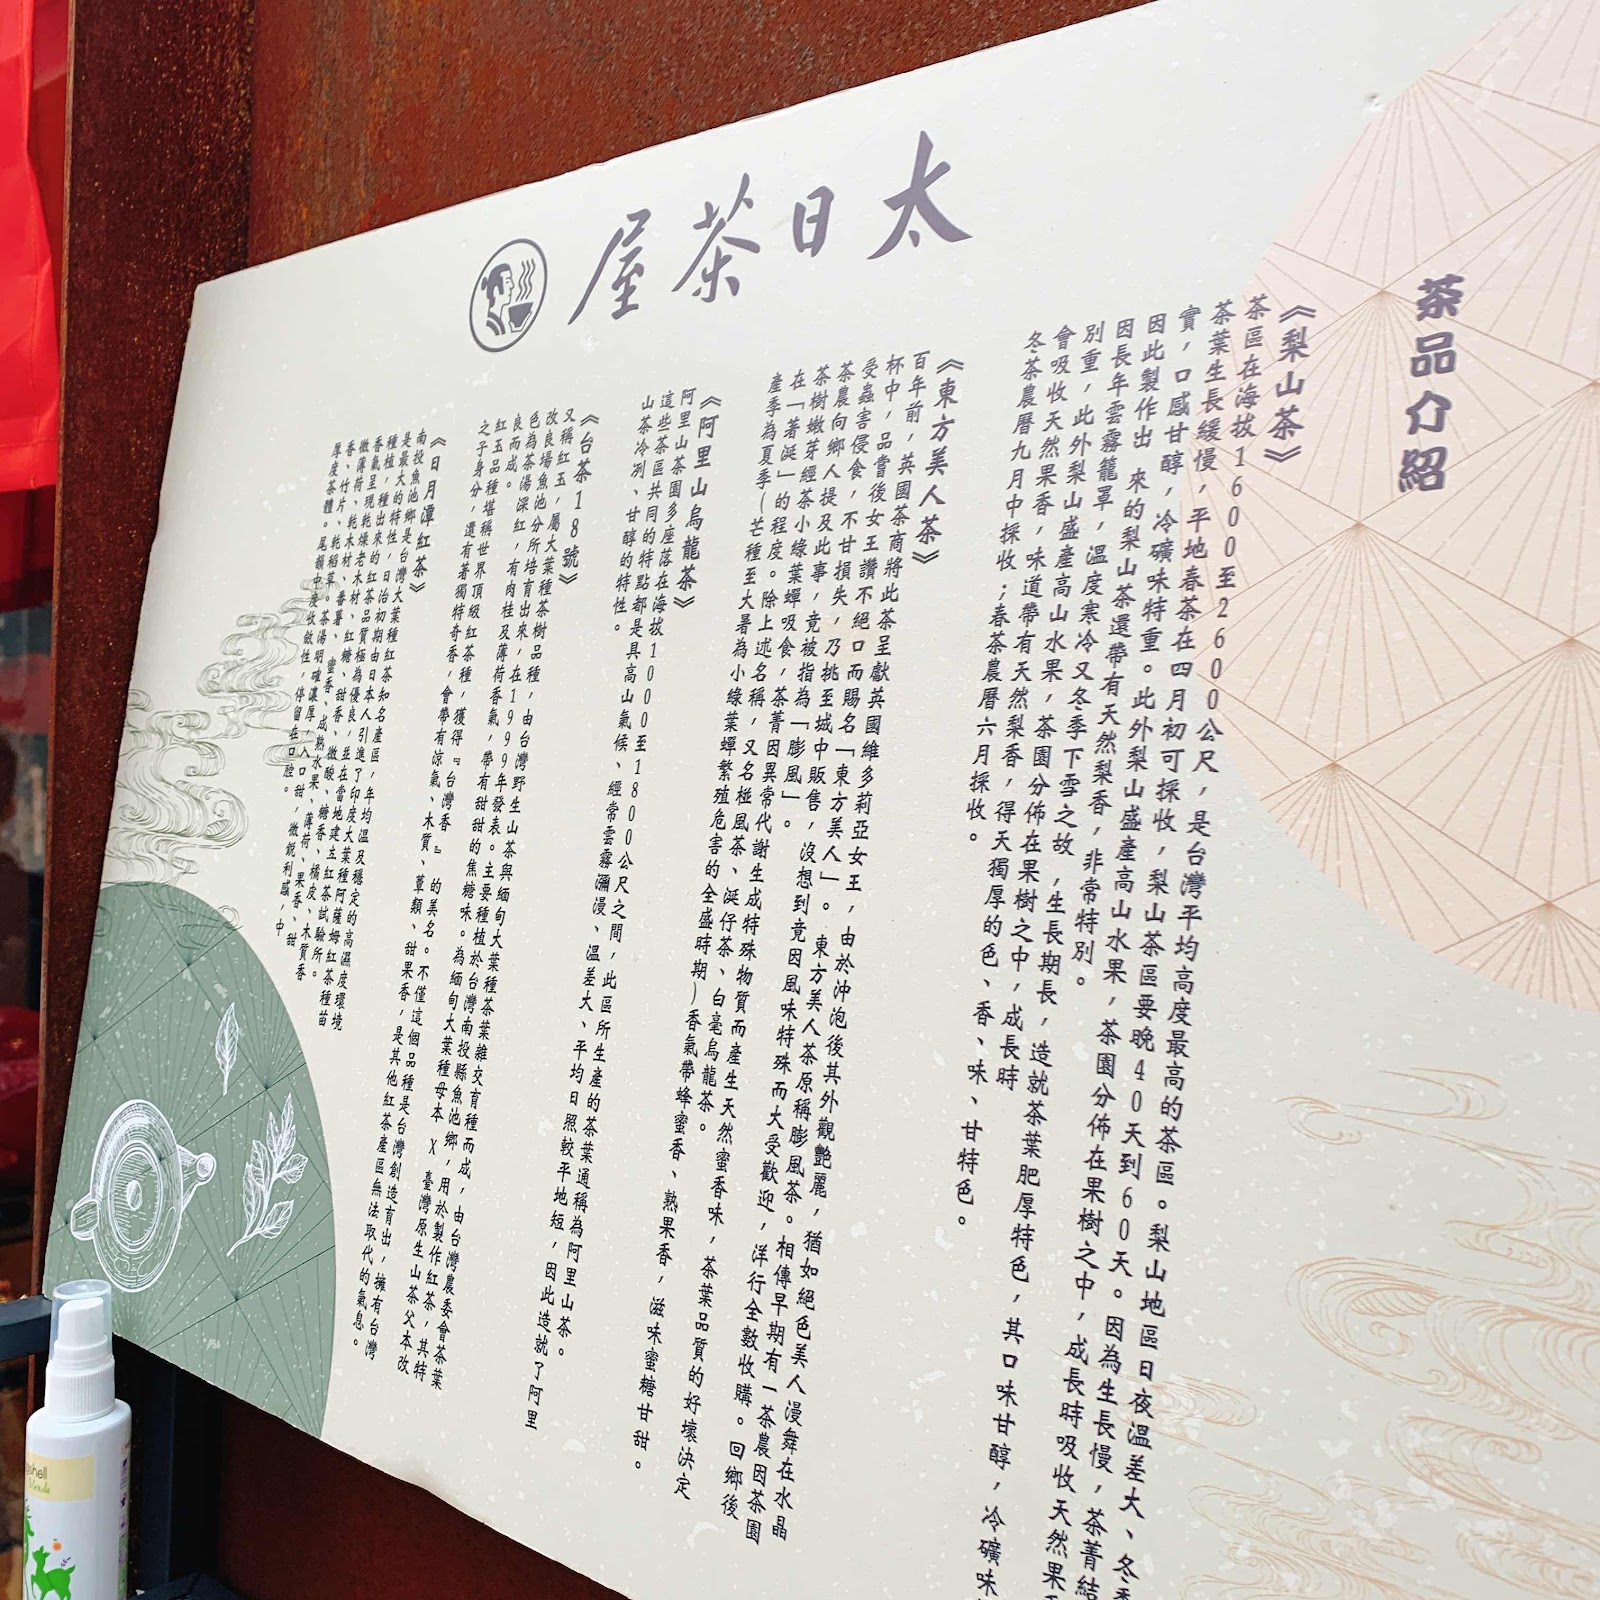 太日茶屋
茶品介紹
《梨山茶》
茶區在海拔1600至2600公尺，是台灣平均高度最高的茶區。梨山地區日夜溫差大、冬
茶葉生長緩慢，平地春茶在四月初可採收，梨山茶區要晚40天到60天。因為生長慢，茶菁結
實，口感甘醇，冷礦味特重。此外梨山盛產高山水果，茶園分佈在果樹之中，成長時吸收天然果
因此製作出 來的梨山茶還帶有天然梨香，非常特別。
因長年雲霧籠罩，溫度寒冷又冬季下雪之故，生長期長，造就茶葉肥厚特色，其口味甘醇，冷礦味
別重，此外梨山盛產高山水果，茶園分佈在果樹之中，成長時
會吸收天然果香，味道帶有天然梨香，得天獨厚的色、香、味、甘特色。
冬茶農曆九月中採收；春茶農曆六月採收。
《東方美人茶》
百年前，英國茶商將此茶呈獻英國維多莉亞女王，由於沖泡後其外觀艷麗，猶如絕色美人漫舞在水晶
杯中，品嘗後女王讚不絕口而賜名「東方美人」。東方美人茶原稱膨風茶。相傳早期有一茶農因茶園
受蟲害侵食，不甘損失，乃挑至城中販售，沒想到竟因風味特殊而大受歡迎，洋行全數收購。回鄉後
茶農向鄉人提及此事，竟被指為「膨風」。
茶樹嫩芽經茶小綠葉蟬吸食，茶菁因異常代謝生成特殊物質而產生天然蜜香味，茶葉品質的好壞決定
在「著涎」的程度。除上述名稱，又名椪風茶、涎仔茶、白毫烏龍茶。
產季為夏季（芒種至大暑為小綠葉蟬繁殖危害的全盛時期）香氣帶蜂蜜香、熟果香，滋味蜜糖甘甜。
《阿里山烏龍茶》
阿里山茶園多座落在海拔1000至1800公尺之間，此區所生產的茶葉通稱為阿里山茶。
這些茶區共同的特點都是具高山氣候、經常雲霧瀰漫、溫差大、平均日照較平地短，因此造就了阿里
山茶冷冽、甘醇的特性。
《台茶18號》
又稱紅玉，屬大葉種茶樹品種，由台灣野生山茶與緬甸大葉種茶葉雜交育種而成，由台灣農委會茶葉
改良場魚池分所培育出來，在1999年發表。主要種植於台灣南投縣魚池鄉，用於製作紅茶，其特
色為茶湯深紅，有肉桂及薄荷香氣，帶有甜甜的焦糖味。為緬甸大葉種母本 X 臺灣原生山茶父本改
良而成。
紅玉品種堪稱世界頂級紅茶種，獲得『台灣香』的美名。不僅這個品種是台灣創造育出，擁有台灣
之子身分，還有著獨特奇香，會帶有涼氣、木質、蕈類、甜果香，是其他紅茶產區無法取代的氣息。
《日月潭紅茶》
南投魚池鄉是台灣大葉種紅茶知名產區，年均溫及穩定的高濕度環境
是最大的特性，日治初期由日本人引進了印度大葉種阿薩姆紅茶種苗
種植，種出來的紅茶品質極為優良，並在當地建立紅茶試驗所。
香氣呈現乾燥老木材、紅糖、甜香、微酸、糖香、橘皮、木質香
微薄荷、乾木材、番薯、蜜香、成熟水果、薄荷、果香、甜
香、竹片、乾稻草。茶湯明確濃厚，入口甜，微銳利感，中
厚度茶體。尾韻中度收斂性，停留在口腔。